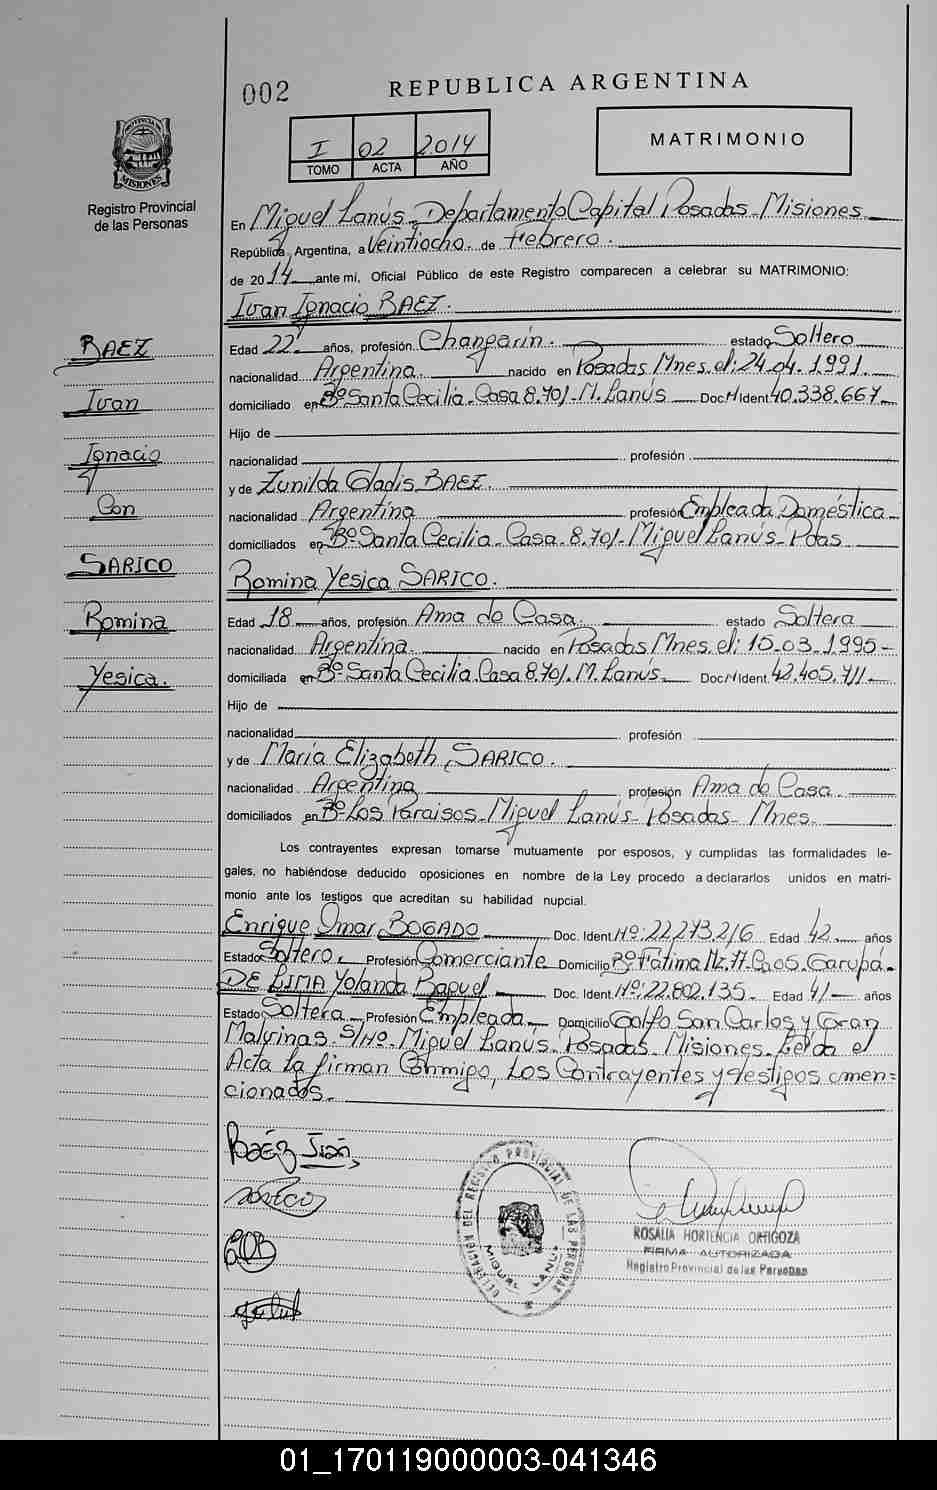 002
REPUBLICA ARGENTINA
I 02 2.014
TOMO ACTA AÑO
MATRIMONIO
PROVINCIA DE
MISIONES
Registro Provincial
de las Personas
En Miguel Lanús - Departamento Capital Posadas - Misiones
República Argentina, a Veintiocho. de Febrero.
de 2014 ante mí, Oficial Público de este Registro comparecen a celebrar su MATRIMONIO:
Ivan Ignacio BAEZ.
BAEZ
Ivan
Ignacio
Con
SARICO
Romina
Yesica.
Edad 22 años, profesión Changarín. estado Soltero
nacionalidad Argentina. nacido en Posadas Mnes. el: 24.04.1991.
domiciliado en Bº Santa Cecilia - Casa 8.701 - M. Lanús Doc. Nº Ident. 40.338.667
Hijo de
nacionalidad profesión
y de Zunilda Gladis BAEZ.
nacionalidad Argentina profesión Empleada Doméstica
domiciliados en Bº Santa Cecilia - Casa - 8.701 - Miguel Lanús - Pdas
Romina Yesica SARICO.
Edad 18 años, profesión Ama de Casa. estado Soltera
nacionalidad Argentina. nacido en Posadas Mnes. el: 15-03-1995-
domiciliada en Bº Santa Cecilia. Casa 8.701. M. Lanús. Doc. Nº Ident. 42.405.711
Hijo de
nacionalidad profesión
y de María Elizabeth SARICO.
nacionalidad Argentina profesión Ama de Casa
domiciliados en Bº Los Paraisos - Miguel Lanús - Posadas - Mnes.
Los contrayentes expresan tomarse mutuamente por esposos, y cumplidas las formalidades le-
gales, no habiéndose deducido oposiciones en nombre de la Ley procedo a declararlos unidos en matri-
monio ante los testigos que acreditan su habilidad nupcial.
Enrique Omar BOGADO Doc. Ident. Nº: 22.273.216 Edad 42 años
Estado Soltero. Profesión Comerciante Domicilio Bº Fátima Mz. H. Ca 05. Garupá -
DE LIMA Yolanda Raquel Doc. Ident. Nº: 22.802.135. Edad 41 años
Estado Soltera Profesión Empleada Domicilio Golfo San Carlos y Gran
Malvinas S/Nº. Miguel Lanus. Posadas - Misiones. Leída el
Acta La firman Conmigo, Los Contrayentes y testigos men=
cionados.
Baéz Iván
DELEGACION DEL REGISTRO PROVINCIAL DE LAS PERSONAS
MIGUEL LANUS
ROSALIA HORTENCIA ORTIGOZA
FIRMA AUTORIZADA
Registro Provincial de las Personas
01_170119000003-041346